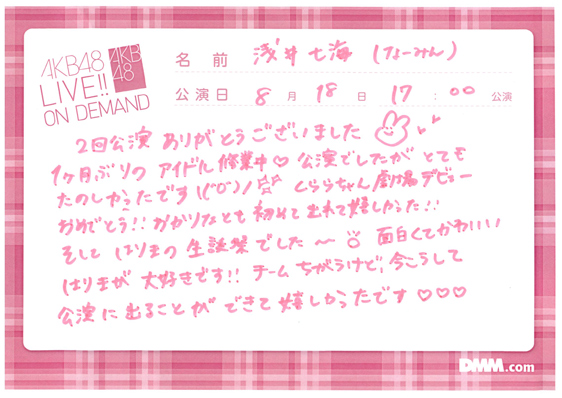 AKB48
LIVE!!
ON DEMAND
AKB
48
名前 浅井七海 (なーみん)
公演日 8月18日 17:00 公演
2回公演 ありがとうございました
1ヶ月ぶりの アイドル修業中♡ 公演でしたが とても
たのしかったです\(^o^)/☆ くららちゃん 劇場デビュー
おめでとう!! かおりなとも 初めて出れて嬉しかった!!
そして はりまの 生誕祭でした〜 面白くてかわいい
はりまが 大好きです!! チーム ちがうけど、今こうして
公演に出ることが できて 嬉しかったです♡♡♡
DMM.com